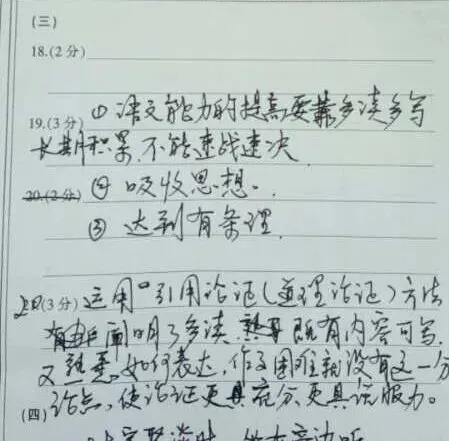 (三)
18.(2分)
19.(3分) ①语文能力的提高要靠多读多写
长期积累,不能速战速决
20.(2分) ② 吸收思想。
③ 达到有条理.
21(3分) 运用"引用论证(道理论证)方法
面明了多读 既有内容可写,
又熟悉如何表达,作文困难就没有这一分
论点,使论证更具充分、更具说服力。
(四)